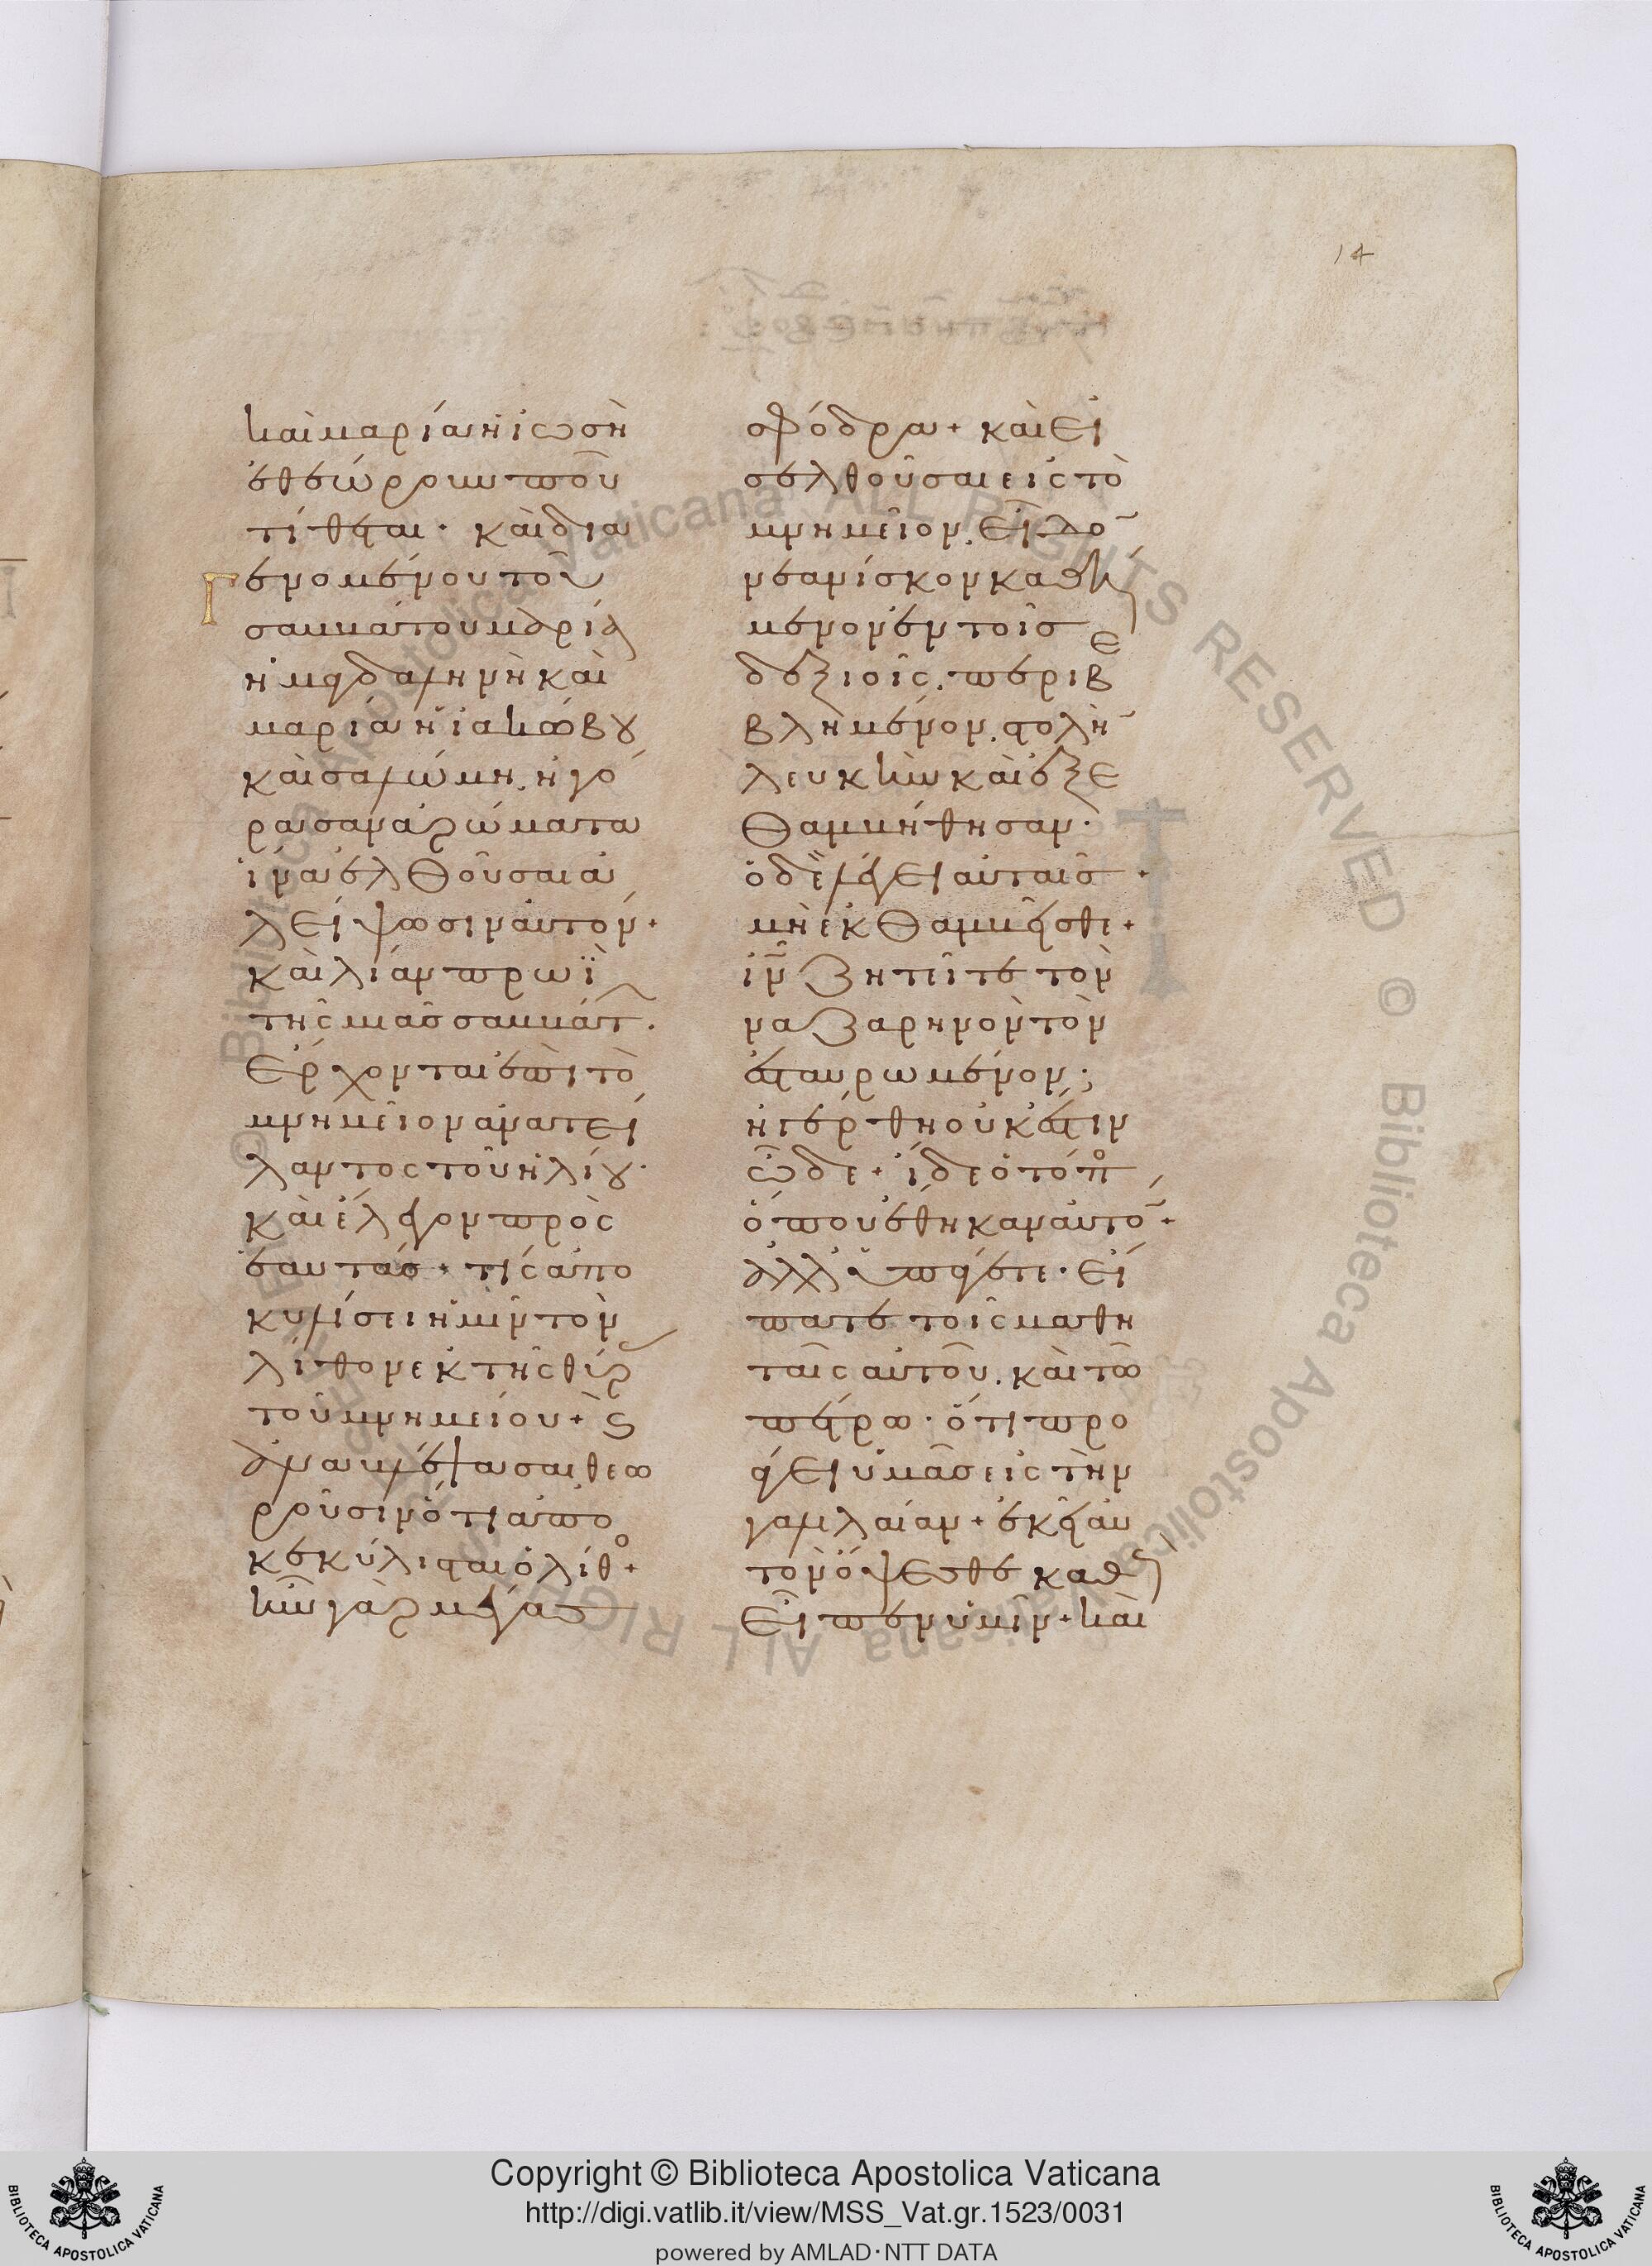 14
καὶ μαρία ἡ ἰωσὴ
ἐθεώρουν ποῦ
τίθεται· καὶ δια
γενομένου τοῦ
σαββάτου μαρία
ἡ μαγδαληνὴ καὶ
μαρία ἡ ἰακώβου
καὶ σαλώμη. ἠγό
ρασαν ἀρώματα
ἵνα ἐλθοῦσαι ἀ
λείψωσιν αὐτόν+
καὶ λίαν πρωῒ
τῆς μιᾶς σαββάτ.
ἔρχονται ἐπὶ τὸ
μνημεῖον ἀνατεί
λαντος τοῦ ἡλίου·
καὶ ἔλεγον πρὸς
ἑαυτάς+ τίς ἀπο
κυλίσει ἡμῖν τὸν
λίθον ἐκ τῆς θύρ
τοῦ μνημείου+ ϗ
ἀναβλέψασαι θεω
ροῦσιν ὅτι ἀπο
κεκύλισται ὁ λίθο+
ἦν γὰρ μέγας
σφόδρα+ καὶ εἰ
σελθοῦσαι εἰς τὸ
μνημεῖον. εἶδο
νεανίσκον καθή
μενον ἐν τοῖς
δεξιοῖς. περιβε
βλημένον. στολὴ
λευκὴν καὶ ἐξε
θαμβήθησαν·
ὁ δὲ λέγει αὐταῖς·
μὴ ἐκθαμβεῖσθε+
ἰν ζητεῖτε τὸν
ναζαρηνὸν τὸν
ἐσταυρωμένον;
ἠγέρθη οὐκ ἔστιν
ὧδε+ ἴδε ὁ τόπο
ὅπου ἔθηκαν αὐτό+
ἀλλ' ὑπάγετε· εἴ
πατε τοῖς μαθη
ταῖς αὐτοῦ. καὶ τῶ
πέτρω· ὅτι προ
άγει ὑμᾶς εἰς τὴν
γαλιλαίαν+ ἐκεῖ αὐ
τὸν ὄψεσθε καθ
εἶπεν ὑμῖν+ καὶ
Copyright © Biblioteca Apostolica Vaticana
http://digi.vatlib.it/view/MSS_Vat.gr.1523/0031
powered by AMLAD·NTT DATA
BIBLIOTECA APOSTOLICA VATICANA
BIBLIOTECA APOSTOLICA VATICANA
© Biblioteca Apostolica Vaticana ALL RIGHTS RESERVED
© Biblioteca Apostolica Vaticana ALL RIGHTS RESERVED